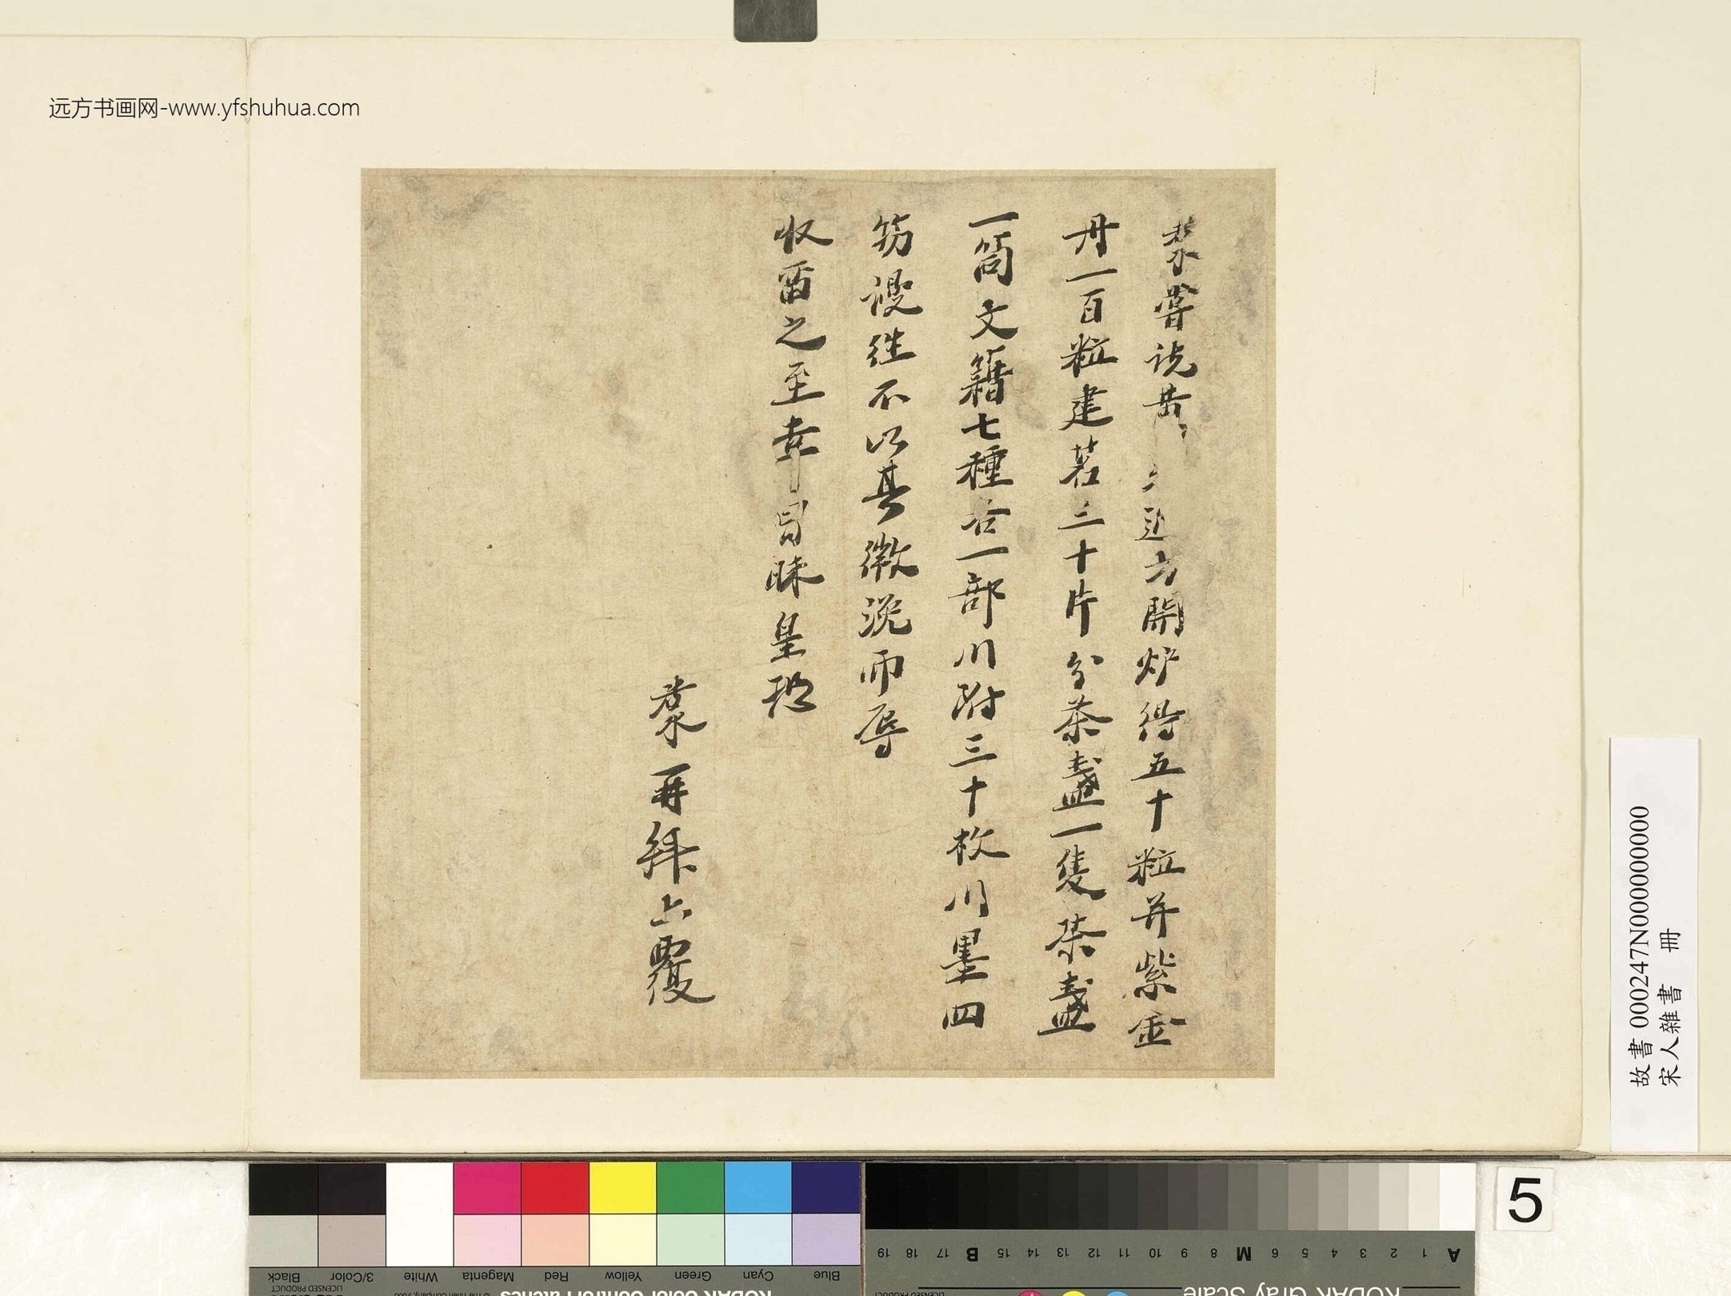 远方书画网-www.yfshuhua.com
嘗说黄 近方開炉得五十粒并紫金
丹一百粒建茗三十片分茶盞一隻茶盞
一筒文籍七種合一部川附三十枚川墨四
笏謾往不以其微浼而辱
收留之至幸冒昧皇恐
再拜上覆
故書 000247N000000000
宋人雜書 冊
5
Black
3/Color
White
Magenta
Red
Yellow
Green
Cyan
Blue
KODAK Color Control Patches
A 1 2 3 4 5 6 M 8 9 10 11 12 13 14 15 B 17 18 19
KODAK Gray Scale